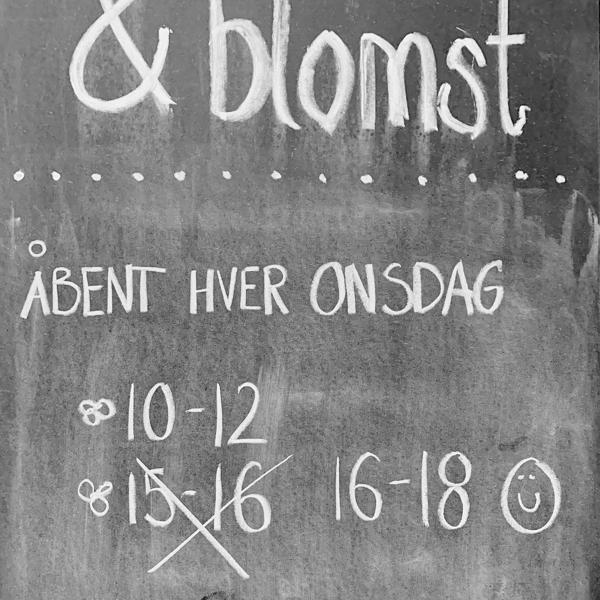 & blomst
ÅBENT HVER ONSDAG
10-12
15-16 16-18